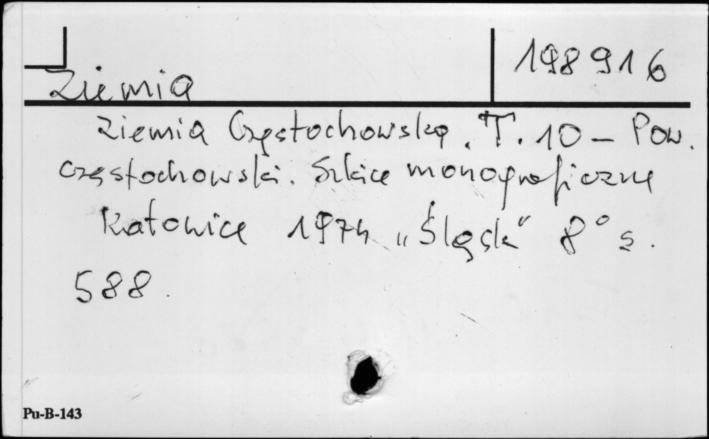 198916
Ziemia
Ziemia Częstochowska. T. 10 – Pow.
częstochowski. Szkice monograficzne
Katowice 1974 „Śląsk” 8° s.
588.
Pu-B-143